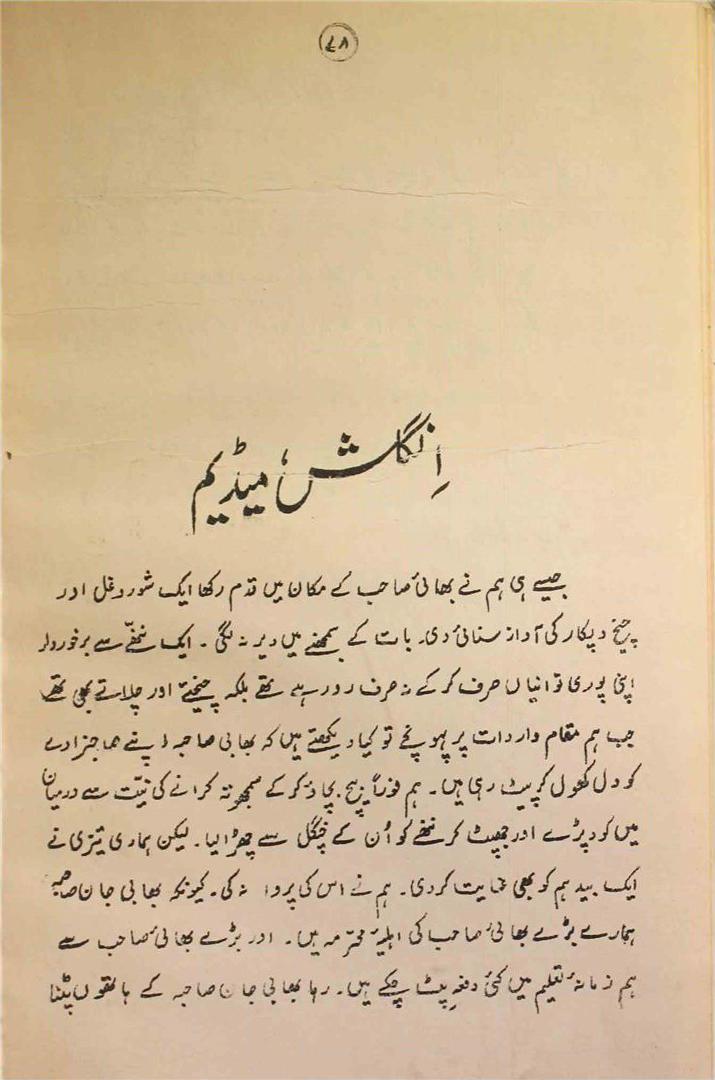 ۷۸
اِنگلش میڈیم
جیسے ہی ہم نے بھائی صاحب کے مکان میں قدم رکھا ایک شور و غل اور
چیخ و پکار کی آواز سنائی دی۔ بات کے سمجھنے میں دیر نہ لگی۔ ایک ننھّے سے برخوردار
اپنی پوری توانیاں صرف کر کے نہ صرف رو رہے تھے بلکہ چیختے اور چلاتے بھی تھے
جب ہم مقام واردات پر پہونچے تو کیا دیکھتے ہیں کہ بھابی صاحبہ اپنے صاحبزادے
کو دل کھول کر پیٹ رہی ہیں۔ ہم فوراً بیچ بچاؤ کر کے سمجھوتہ کرانے کی نیّت سے درمیان
میں کود پڑے اور جھپٹ کر ننھے کو اُن کے چنگل سے چھڑا لیا۔ لیکن ہماری تیزی نے
ایک بید ہم کو بھی عنایت کر دی۔ ہم نے اس کی پروا نہ کی۔ کیونکہ بھابی جان صاحبہ
ہمارے بڑے بھائی صاحب کی اہلیۂ محترمہ ہیں۔ اور بڑے بھائی صاحب سے
ہم زمانۂ تعلیم میں کئی دفعہ پٹ چکے ہیں۔ رہا بھابی جان صاحبہ کے ہاتھوں پٹنا